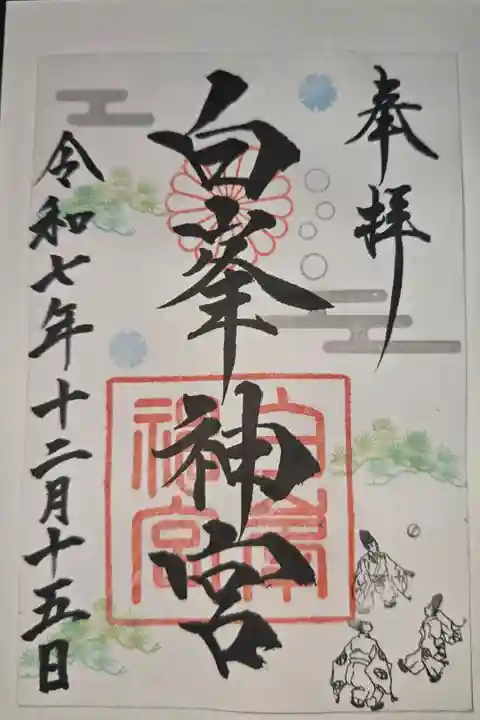 奉拝
白峯神宮
白峯神宮
令和七年十二月十五日